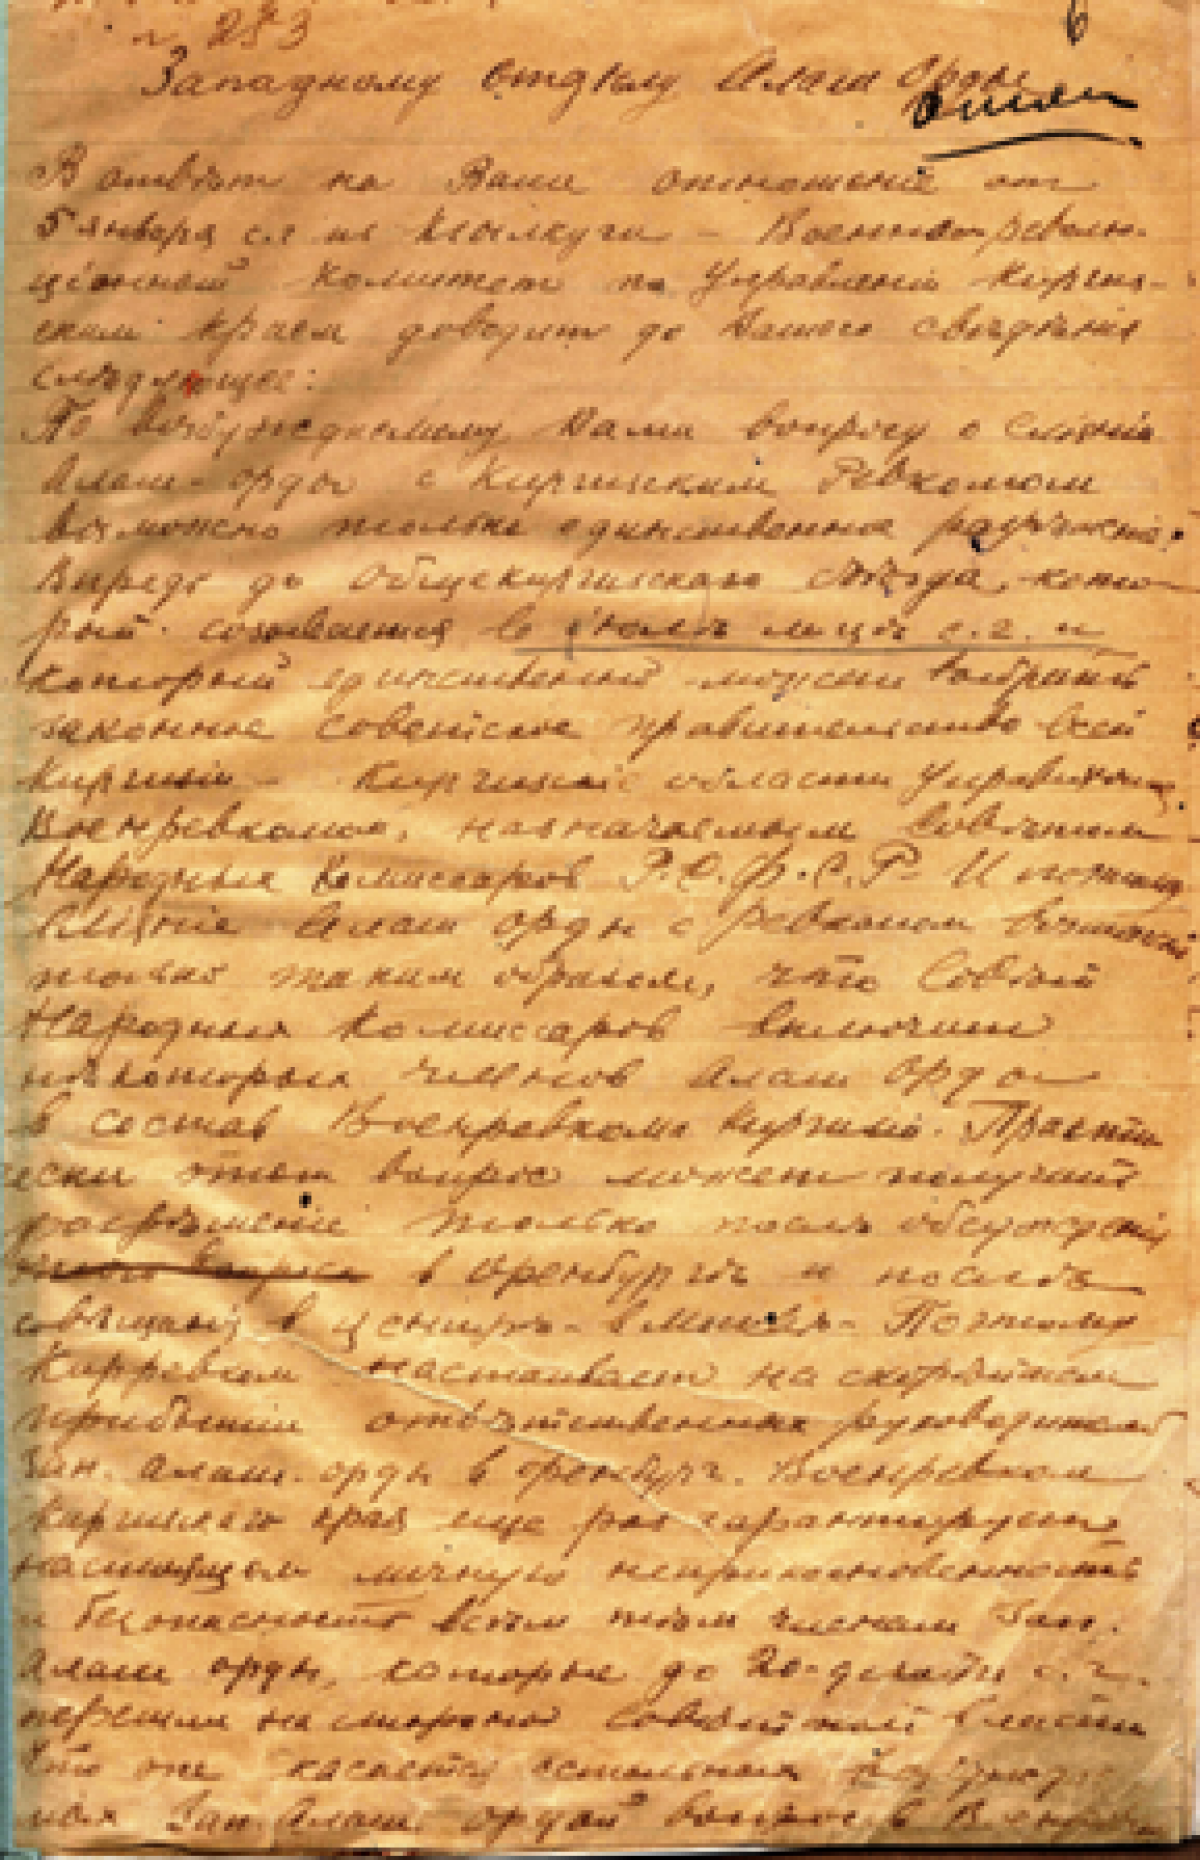 № 253
6
Западному отделу Алаш Орды
В ответ на Ваше отношение от
5 января с.г. из Кзылкуги – Военно-револю-
ціонный Комитет по Управленію Киргиз-
ским Краем доводит до Вашего сведенія
следующее:
По возбуждаемому Вами вопросу о сліяніи
Алаш-орды с Киргизским Ревкомом
возможно только единственное разрешеніе:
Впредь до Общекиргизского съезда, кото-
рый созывается в іюле м-це с.г. и
который единственный может выбрать
законное советское правительство всей
Киргизіи – Киргизскіе области управляются
Военревкомом, назначаемым Советом
Народных Комиссаров Р.С.Ф.С.Р. И потому
сліяніе Алаш Орды с ревкомом возможно
только таким образом, что Совет
Народных Комиссаров включит
некоторых членов Алаш Орды
в состав Военревкома Киргизіи. Практи
чески этот вопрос может получить
разрешеніе только после обсужденія
в Оренбурге и после
совещанія в центре – в Москве – Поэтому
Кирревком настаивает на скорейшем
прибытіи ответственных руководителей
Зап. Алаш. орды в Оренбург. Военревком
Киргизского края еще раз гарантирует
настоящим личную неприкосновенность
и безопасность всем тем членам Зап.
Алаш орды, которые до 20-
перешли на сторону советской власти
Что же касается остальных
мых Зап. Алаш ордой вопросов